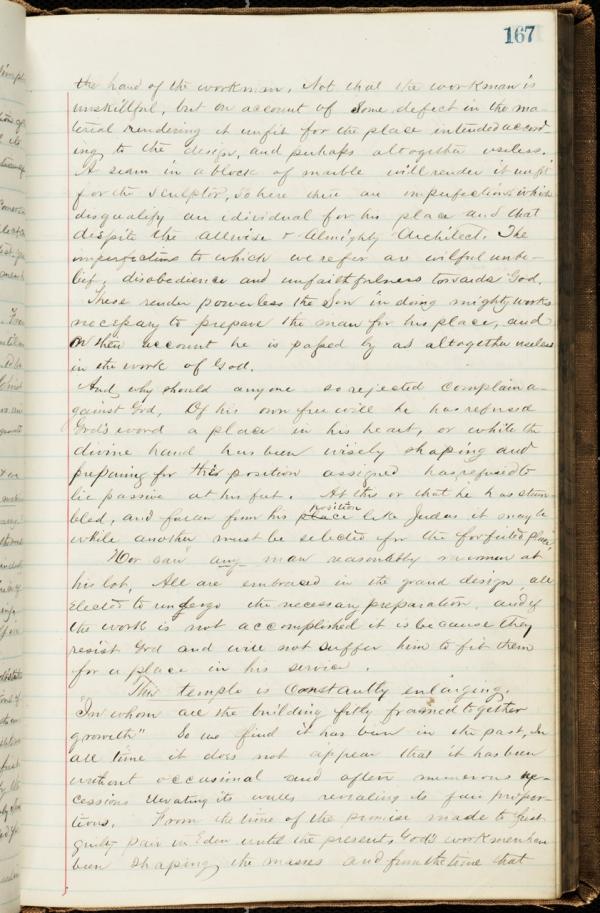 167
the hand of the workman. Not that the workman is
unskillful, but on account of some defect in the ma-
terial rendering it unfit for the place intended accord-
ing to the design, and perhaps altogether useless.
A seam in a block of marble will render it unfit
for the sculptor, so here there are imperfections which
disqualify an idividual for his place and that
despite the allwise & Almighty Architect. The
imperfections to which we refer are wilful unbe-
lief, disobedience and unfaithfulness towards God.
These render powerless the Son in doing mighty works
necessary to prepare the man for his place, and
on their account he is passed by as altogether useless
in the work of God.
And why should anyone so rejected complain a-
gainst God, Of his own free will he has refused
God's word a place in his heart, or while the
divine hand has been wisely shaping and
preparing for the position assigned has refused to
lie passive at his feet. At this or that he has stum-
bled, and fallen from his position like Judas it may be
while another must be selected for the forfeited place.
Nor can any man reasonably murmur at
his lot. All are embraced in the grand design all
Elected to undergo the necessary preparation and if
the work is not accomplished it is because they
resist God and will not suffer him to fit them
for a place in his service.
This temple is constantly enlarging.
"In whom all the building fitly framed together
groweth" So we find it has been in the past, In
all time it does not appear that it has been
without occasional and often numerous ac-
cessions elevating its walls revealing its fair propor-
tions. From the time of the promise made to
guilty pair in Eden until the present God's workmen have
been shaping the masses and from the time that